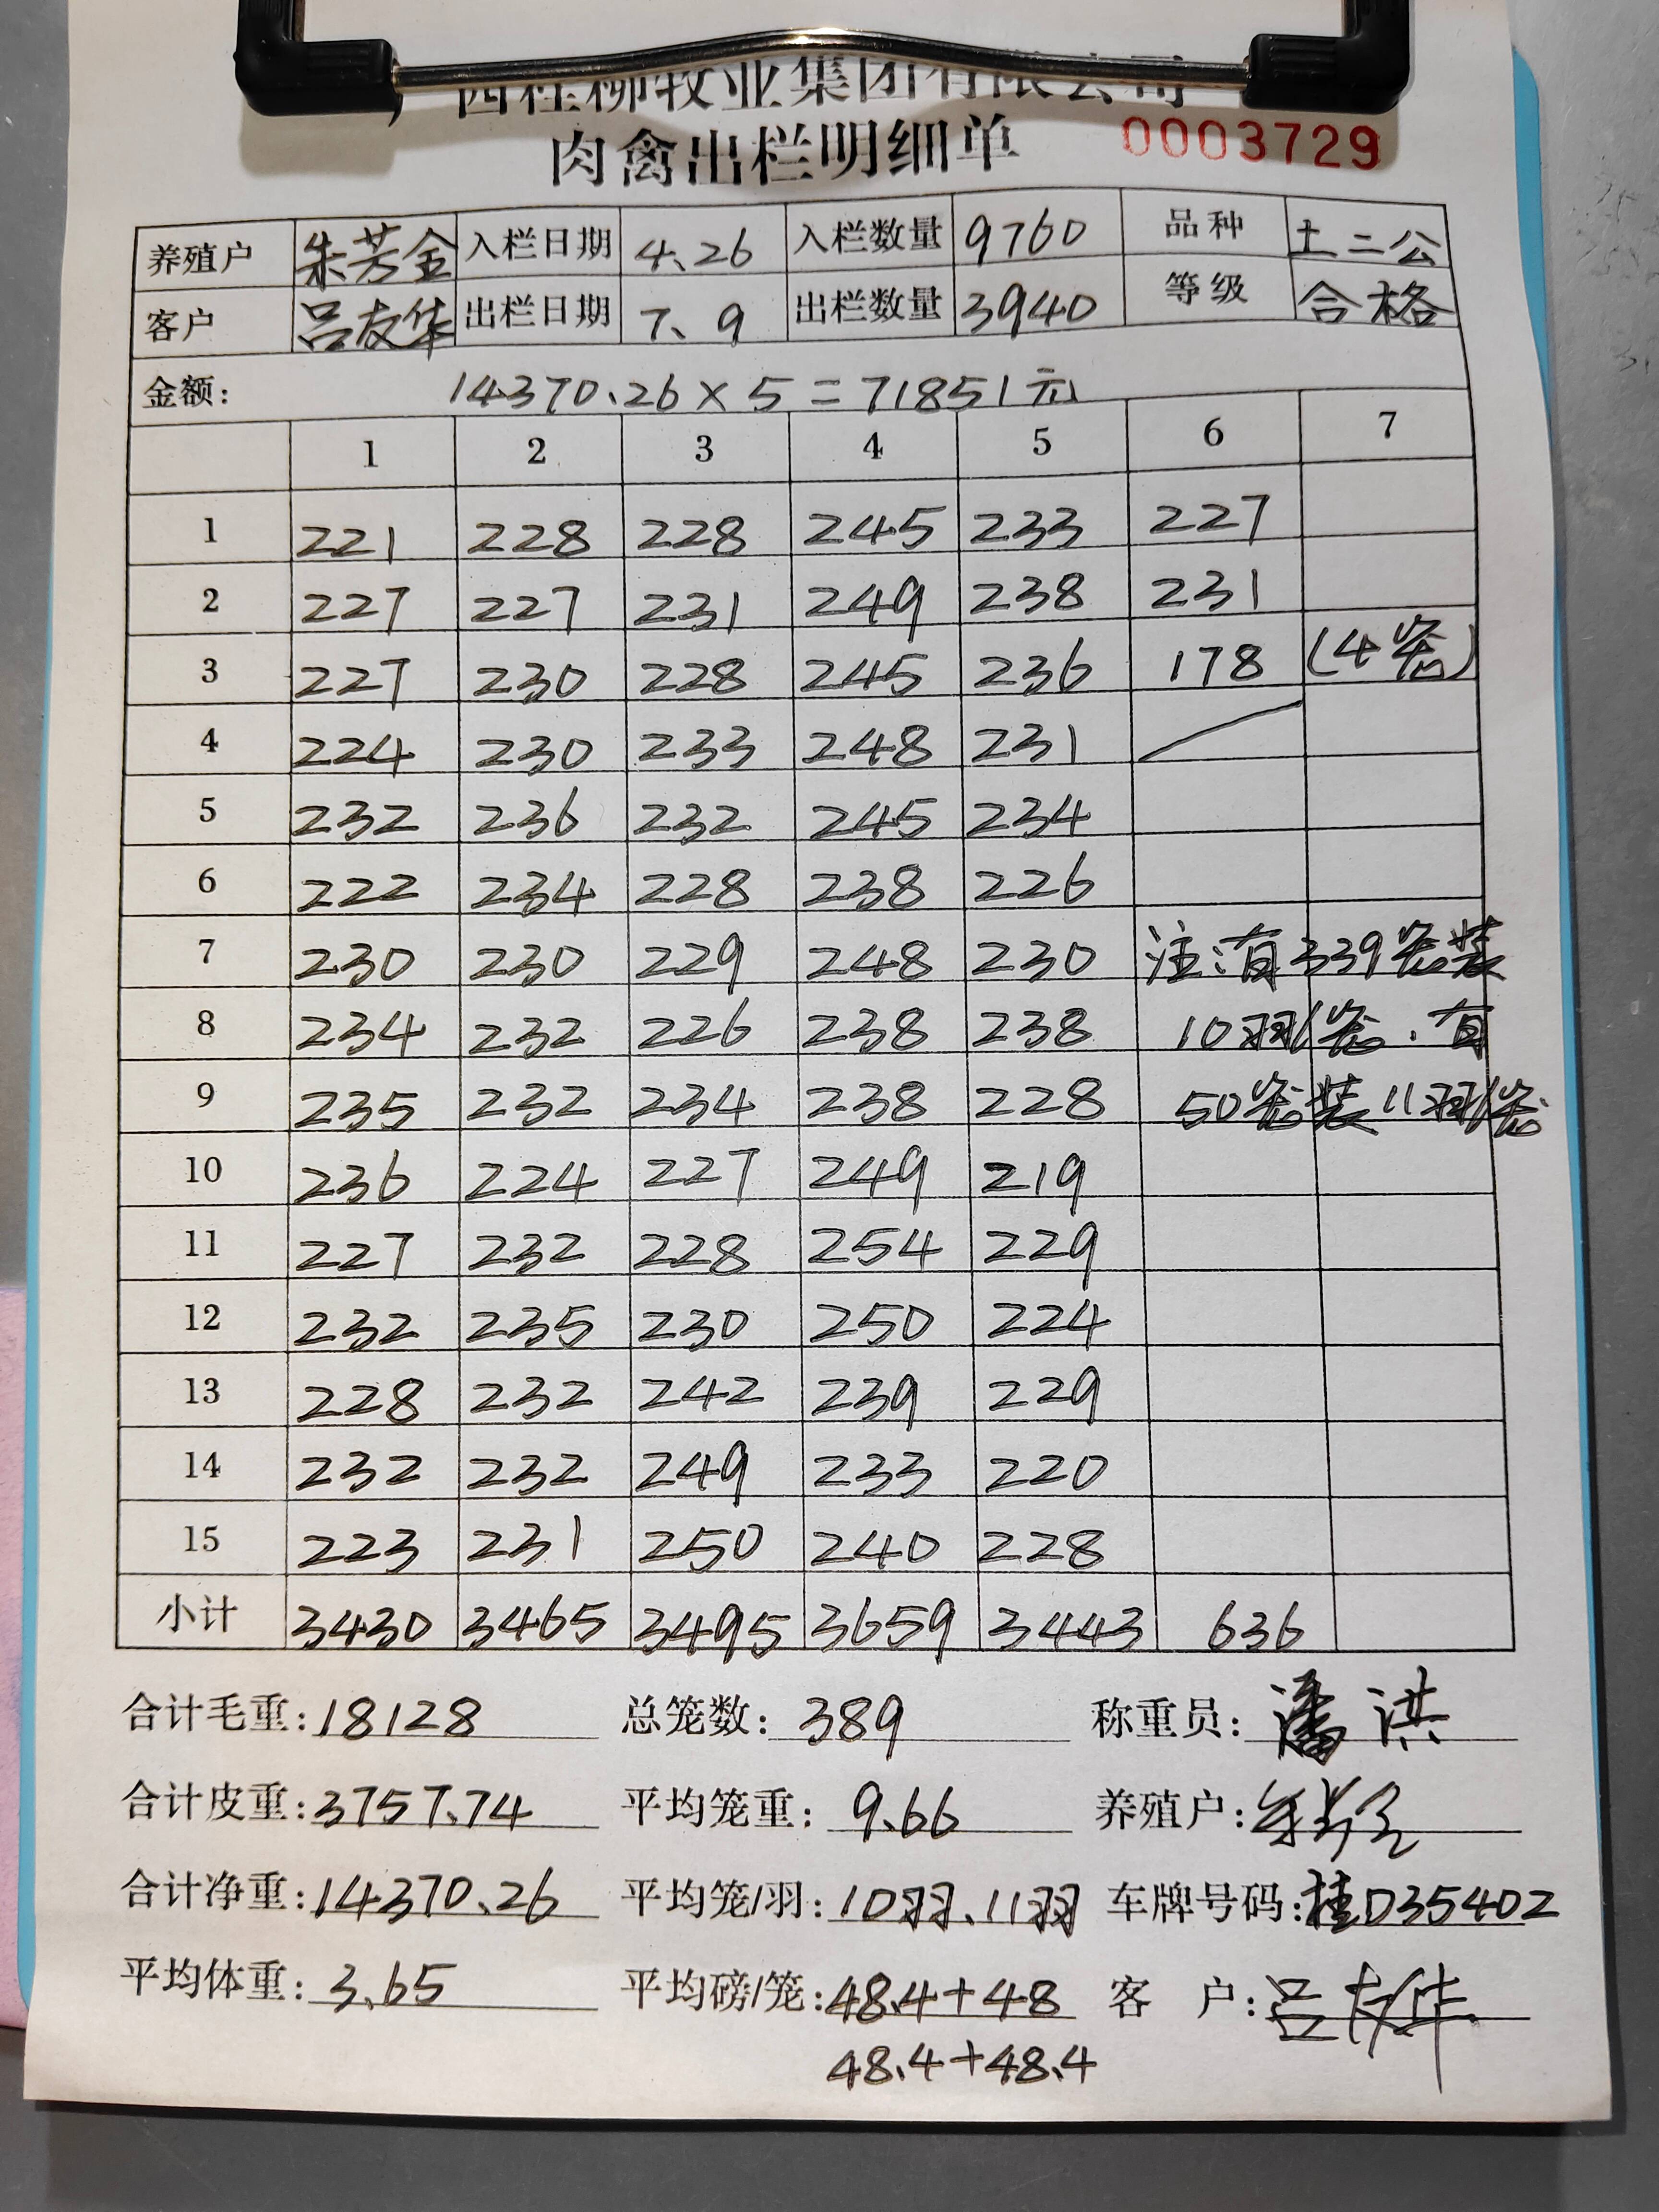 西桂柳牧业集团有限公司
肉禽出栏明细单 0003729
养殖户 朱芳金 入栏日期 4、26 入栏数量 9760 品种 土二公
客户 吕友华 出栏日期 7、9 出栏数量 3940 等级 合格
金额： 14370、26×5=71851元
1 2 3 4 5 6 7
1 221 228 228 245 233 227
2 227 227 231 249 238 231
3 227 230 228 245 236 178 (4笼)
4 224 230 233 248 231
5 232 236 232 245 234
6 222 234 228 238 226
7 230 230 229 248 230 注:有339笼装
8 234 232 226 238 238 10羽/笼.有
9 235 232 234 238 228 50笼装11羽/笼
10 236 224 227 249 219
11 227 232 228 254 229
12 232 235 230 250 224
13 228 232 242 239 229
14 232 232 249 233 220
15 223 231 250 240 228
小计 3430 3465 3495 3659 3443 636
合计毛重：18128 总笼数：389 称重员：潘洪
合计皮重：3757、74 平均笼重：9、66 养殖户：朱芳金
合计净重：14370、26 平均笼/羽：10羽、11羽 车牌号码：桂D35402
平均体重：3、65 平均磅/笼：48、4+48 客户：吕友华
48、4+48、4